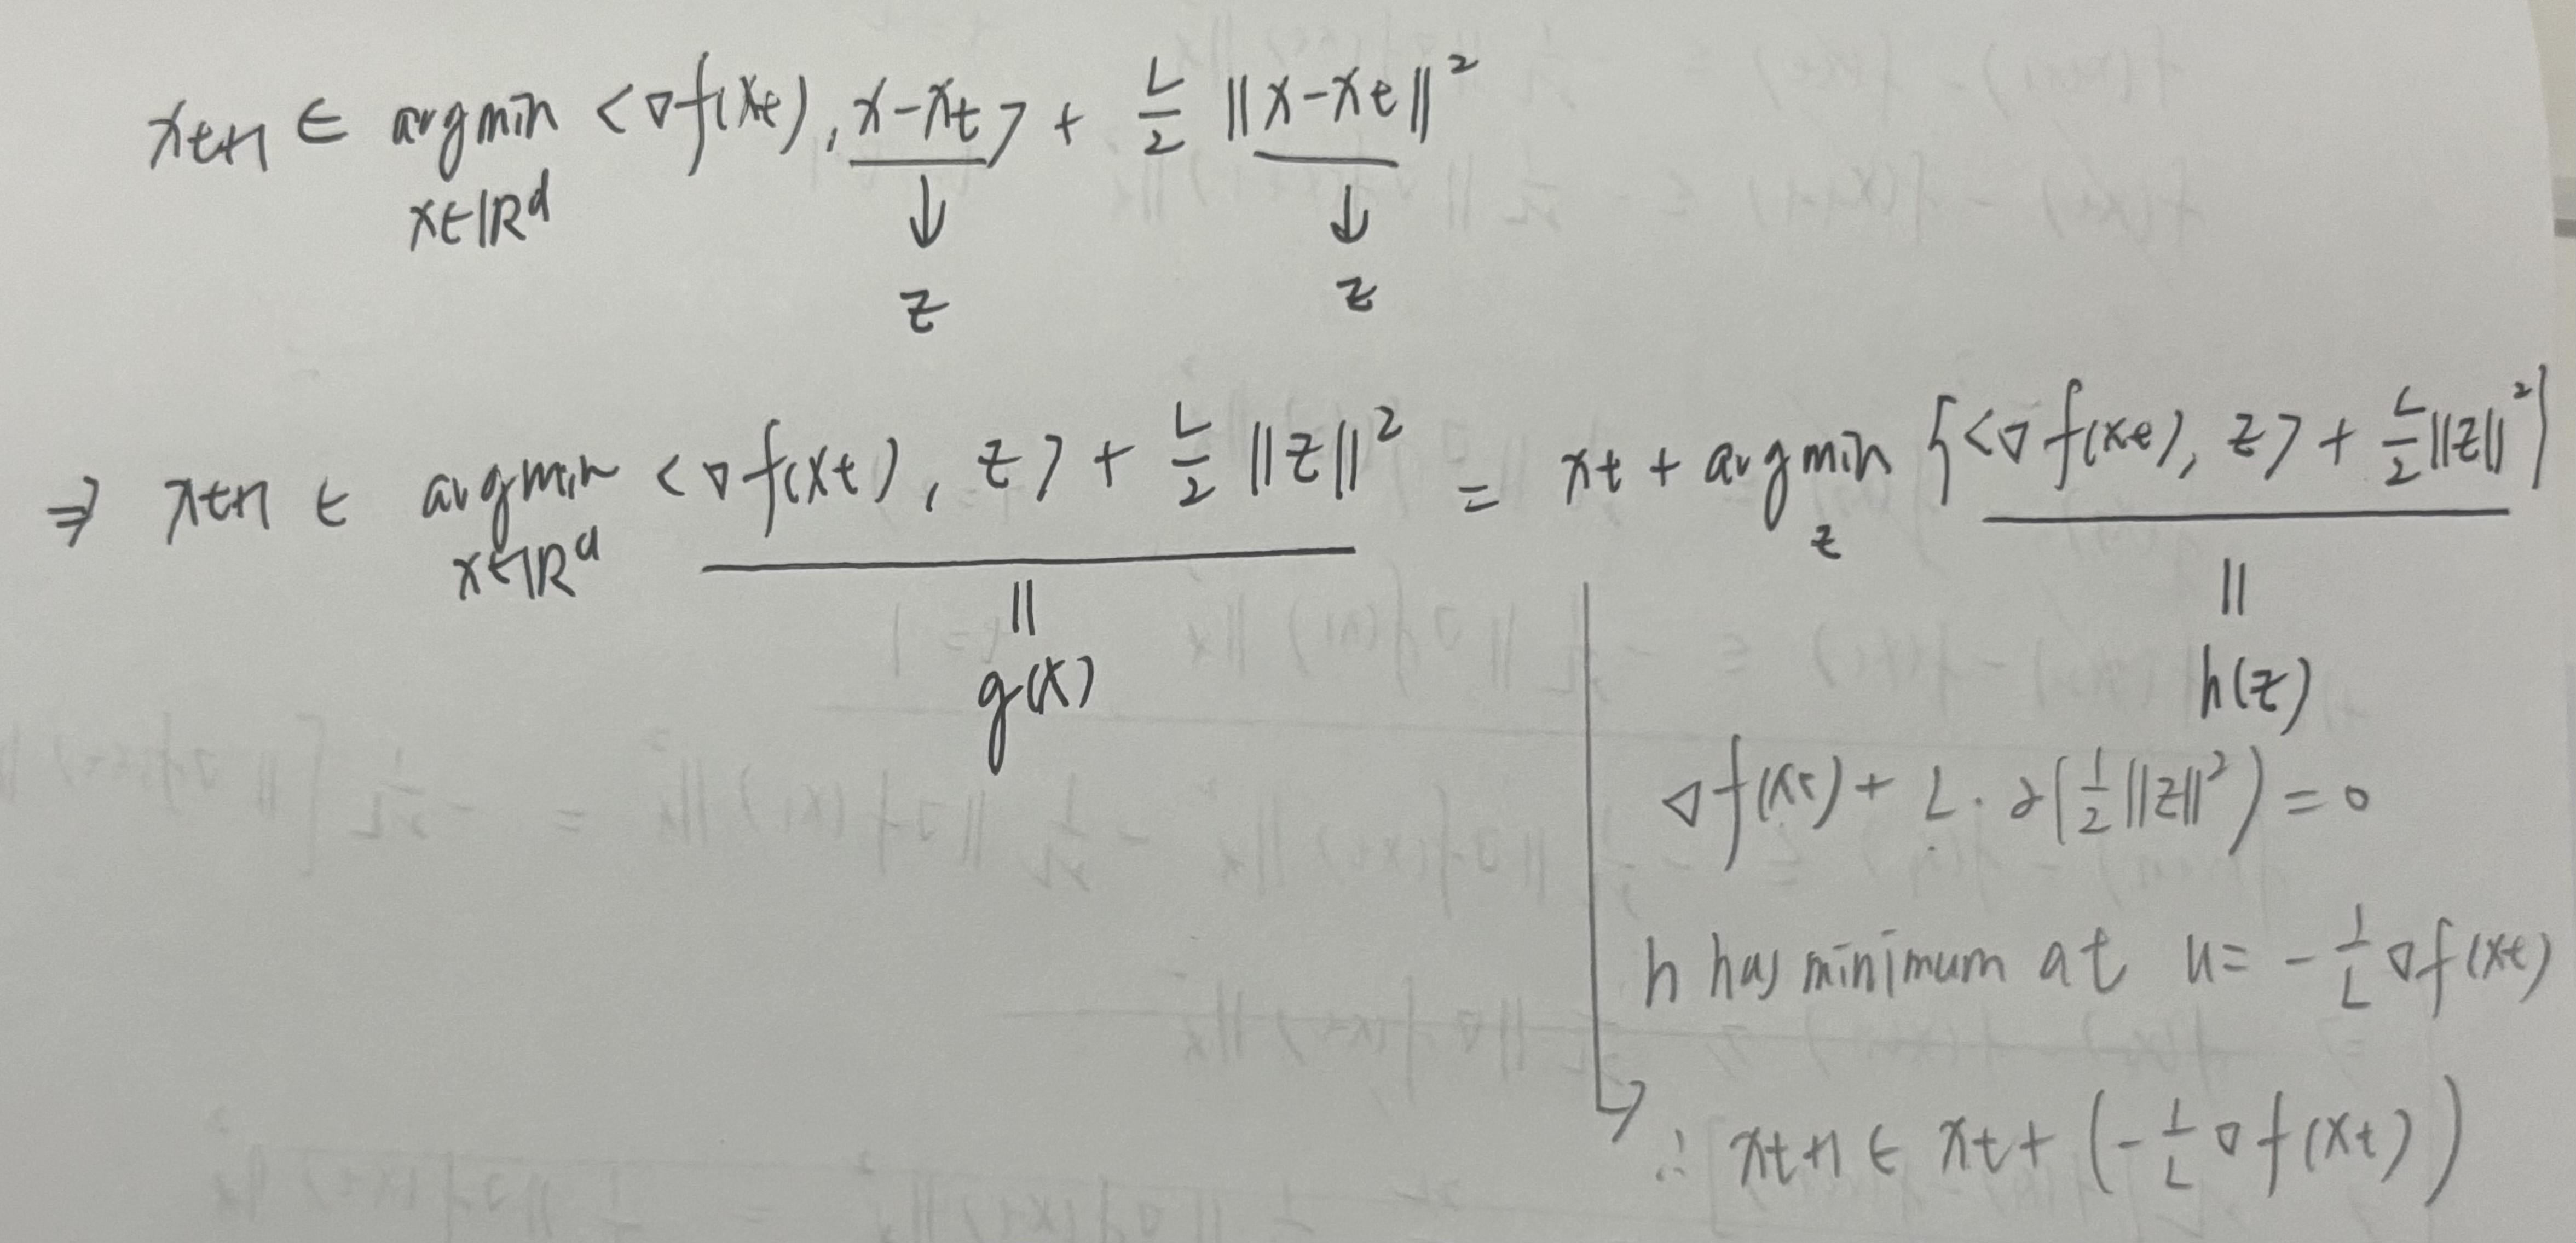 x_{t+1} ∈ argmin <∇f(x_t), x-x_t> + L/2 ||x-x_t||²
x∈ℝ^d
↓ ↓
z z
⇒ x_{t+1} ∈ argmin <∇f(x_t), z> + L/2 ||z||² = x_t + argmin {<∇f(x_t), z> + L/2||z||²}
x∈ℝ^d z
|| ||
g(x) h(z)
∇f(x_t) + L · ∂(1/2 ||z||²) = 0
h has minimum at u = -1/L ∇f(x_t)
∴ x_{t+1} ∈ x_t + (-1/L ∇f(x_t))